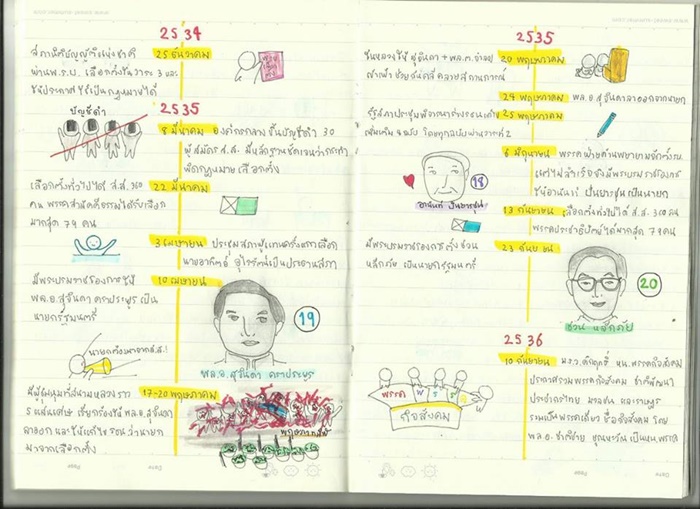 2534
25 ธันวาคม
สภานิติบัญญัติแห่งชาติ
ผ่าน พ.ร.บ. เลือกตั้ง 3 และ
2535
บัญชีดำ
8 มีนาคม องค์กรกลาง ขึ้นบัญชีดำ 30
ผู้สมัคร ส.ส. มีหลักฐานชัดเจนว่ากระทำ
ผิดกฎหมายเลือกตั้ง
22 มีนาคม
เลือกตั้งทั่วไปได้ ส.ส. 360
คน พรรคสามัคคีธรรมได้รับเลือก
มากสุด 79 คน
3 เมษายน ประชุมสภาผู้แทนครั้งแรกเลือก
นายอาทิตย์ อุไรรัตน์เป็นประธานสภา
10 เมษายน
มีพระบรมราชโองการให้
พล.อ.สุจินดา คราประยูร เป็น
นายกรัฐมนตรี
19
พล.อ. สุจินดา คราประยูร
นายกต้องมาจาก ส.ส.!
17-20 พฤษภาคม
มีผู้ชุมนุมที่สนามหลวง
เรียกร้องให้ พล.อ.สุจินดา
ลาออก และให้แก้ไข รธน ว่านายก
มาจากเลือกตั้ง
พฤษภาทมิฬ
2535
20 พฤษภาคม
ในหลวงให้ สุจินดา + พล.ต.จำลอง
เข้าเฝ้า คลายสถานการณ์
24 พฤษภาคม พล.อ.สุจินดาลาออกจากนายก
25 พฤษภาคม
เพิ่มเติม 4 ฉบับ
6 มิถุนายน
ให้อานันท์ ปันยารชุน เป็นนายก
18
อานันท์ ปันยารชุน
13 กันยายน เลือกตั้งทั่วไปได้ ส.ส. 360 คน
พรรคประชาธิปัตย์ได้มากสุด 79 คน
23 กันยายน
มีพระบรมราชโองการตั้งชวน
หลีกภัย เป็นนายกรัฐมนตรี
20
ชวน หลีกภัย
2536
10 กันยายน ม.ร.ว. คึกฤทธิ์ หน. พรรคกิจสังคม
ประกาศรวมพรรคกิจสังคม ชาติพัฒนา
ประชากรไทย มวลชน และราษฎร
รวมเป็นพรรคเดียว ชื่อกิจสังคม โดย
พล.อ. ชาติชาย ชุณหะวัณ เป็น หน.พรรค
กิจสังคม